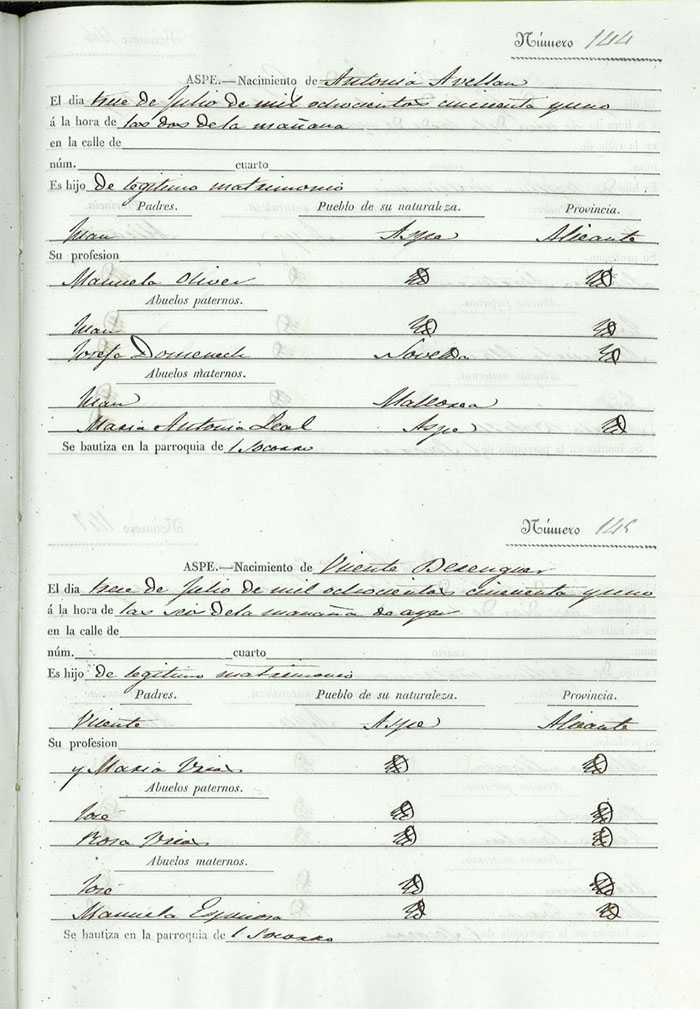 Número 144
ASPE.—Nacimiento de Antonia Avellan
El dia trece de Julio de mil ochocientos cincuenta y uno
á la hora de las dos de la mañana
en la calle de
núm. cuarto
Es hijo de legitimo matrimonio
Padres. Pueblo de su naturaleza. Provincia.
Juan Aspe Alicante
Su profesion
Manuela Oliver Yd Yd
Abuelos paternos.
Juan Yd Yd
Josefa Domenech Novelda Yd
Abuelos maternos.
Juan Mallorca
Maria Antonia Leal Aspe Yd
Se bautiza en la parroquia de l Socorro
Número 145
ASPE.—Nacimiento de Vicente
El dia trece de Julio de mil ochocientos cincuenta y uno
á la hora de las seis de la mañana de ayer
en la calle de
núm. cuarto
Es hijo de legitimo matrimonio
Padres. Pueblo de su naturaleza. Provincia.
Vicente Aspe Alicante
Su profesion
y Maria Yd Yd
Abuelos paternos.
José Yd Yd
Rosa Yd Yd
Abuelos maternos.
José Yd Yd
Manuela Espinosa Yd Yd
Se bautiza en la parroquia de l Socorro